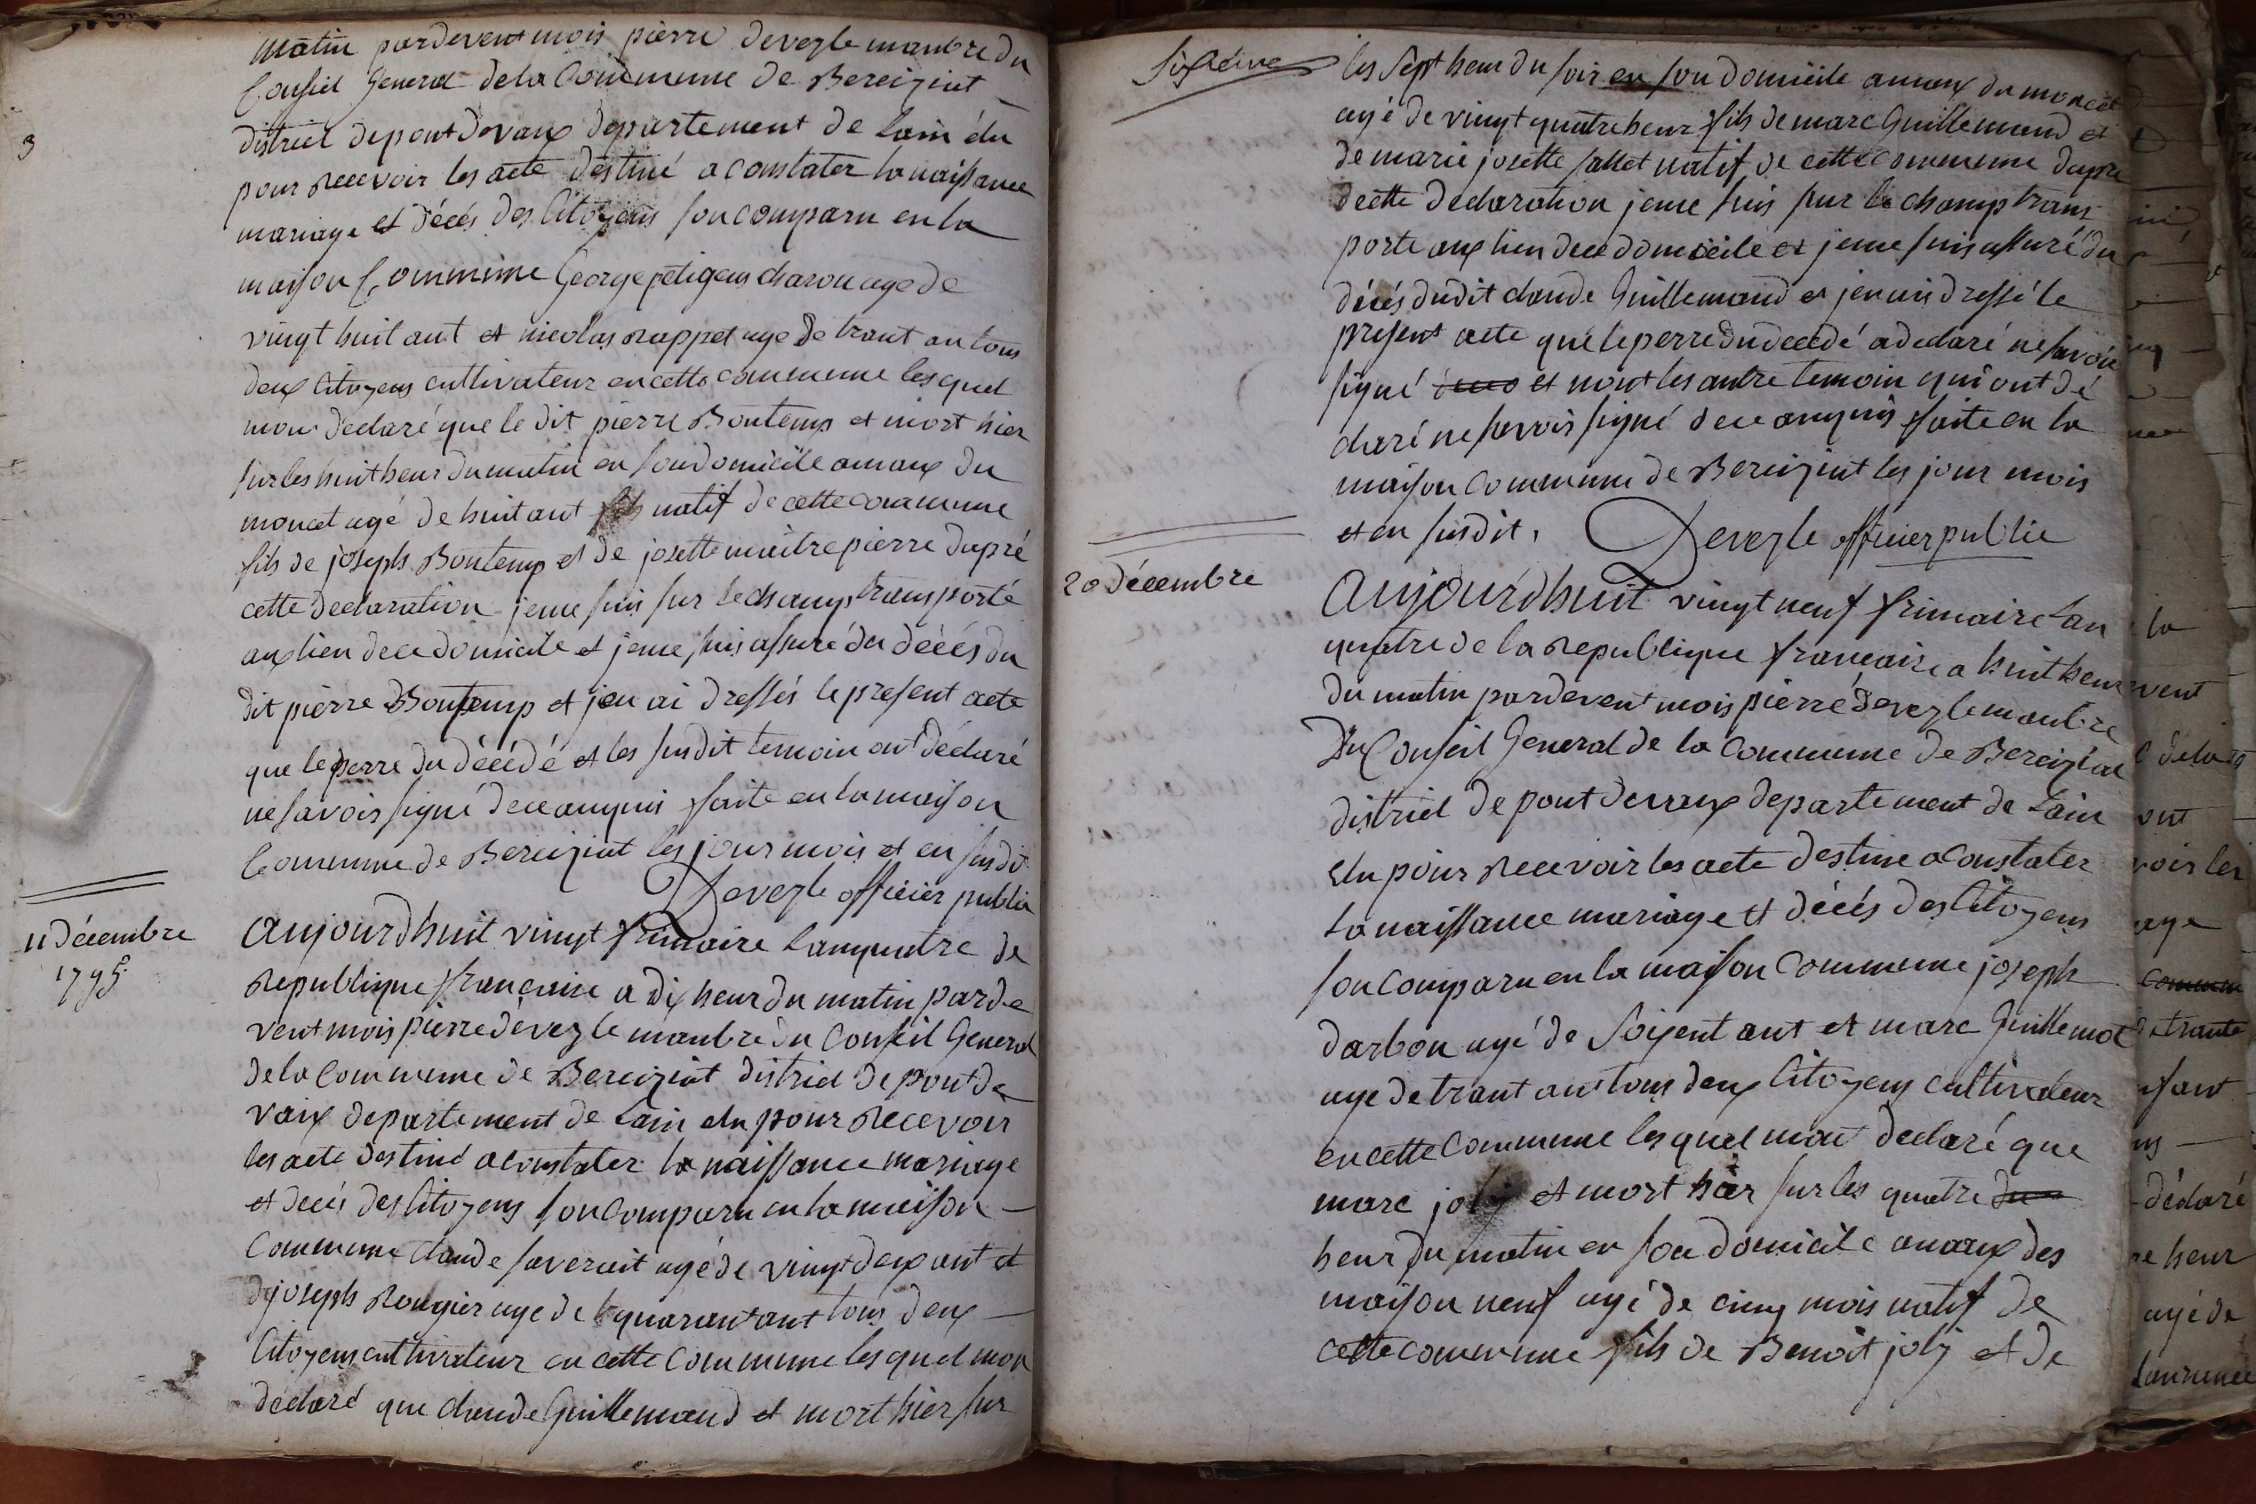 3
matin pardevent mois pierre devezle manbre du
Conseil General de la Commeune de Bereiziat
district de pont de vaux departement de Lain élu
pour Recevoir les acte destiné a constater la naissance
mariage et décés des Citoyens son comparu en la
maison Commune George petigeus charon age de
vingt huit ant et nicolas Rappet age de trant an tous
deux Citoyens cultivateur en cette commeune les quel
mon déclaré que le dit pierre Bontemp et mort hier
sur les huit heur du matin en son domicile amaux du
moncet agé de huit ant natif de cette commeune
fils de joseph Bontemp et de josette maitrepierre dapré
cette declaration jeme suis sur le champs transporté
aux lieu de ce domicile et jeme suis assuré du décés du
dit pierre Bontemp et jen ai dressés le present acte
que le perre du décédé et les susdit temoin ont déclaré
ne savois signé de ce anquis faite en la maison
Commeune de Bereiziat les jour mois et en susdit
Devezle officier public
11 Décembre
1795
aujourdhuit vingt frimaire lan quatre de
Republique françaixe a dix heur du matin parde
vent mois pierre devezle manbre du Conseil General
de la Commeune de Bereiziat district de pont de
vaux departement de Lain elu pour Recevoir
les acte destiné a constater la naissance mariage
et decés des Citoyens son comparu en la maison
Commeune claude faveroit agé de vingt deux ant et
joseph Rougier age de quarant ant tous deux
Citoyens cultivateur en cette commeune les quel mon
declaré que claude Guillemaud et mort hier sur
les sept heur du soir en son domicile amaux du moncet
agé de vingt quatre heur fils de marc Guillemaud et
de marie josette natif de cette commeune dapre
cette declaration jeme suis sur le champ trans
porte aux lieu de ce domicile et jeme suis assuré du
décés dudit claude Guillemaud et jen ais dressé le
present acte que le perre du décédé a declaré ne savoir
signé et nont les autre temoin qui ont dé
claré ne savois signé de ce anquis faite en la
maison commeune de Bereiziat les jour mois
et en susdit. Devezle officier public
20 Décembre
aujourdhuit vingt neuf frimaire Lan
quatre de la Republique françaixe a huit heur
du matin pardevent mois pierre devezle manbre
Du Conseil General de la Commeune de Bereiziat
district de pont de vaux departement de Lain
elu pour Recevoir les acte destine a Constater
la naissance mariage et décés des Citoyens
son comparu en la maison Commeune joseph
darbon agé de soixent ant et marc Guillemot
age de trant ant tous deux Citoyens cultivateur
en cette commeune les quel mont declaré que
marc joly et mort hier sur les quatre du
heur du matin en son domicile amaux des
maison neuf agé de cinq mois natif de
cette commeune fils de Benoit joly et de
la
vent
de la
ont
voir les
age
commeun
trante
ns
déclaré
heur
agé de